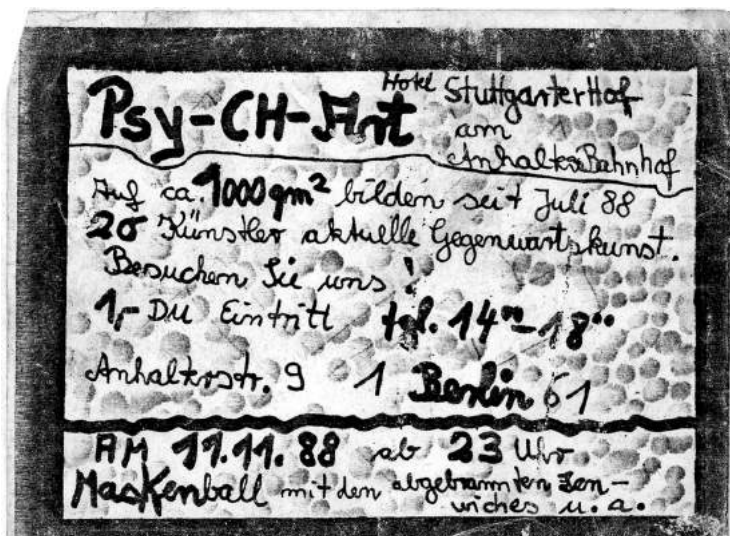 Psy-CH-Art
Hotel Stuttgarter Hof
am
Anhalter Bahnhof
Auf ca. 1000 qm² bilden seit Juli 88
20 Künstler aktuelle Gegenwartskunst.
Besuchen Sie uns!
1,- DM Eintritt tgl. 14°°-18°°
Anhalterstr. 9 1 Berlin 61
AM 11.11.88 ab 23 Uhr
Maskenball mit den abgebrannten
u. a.